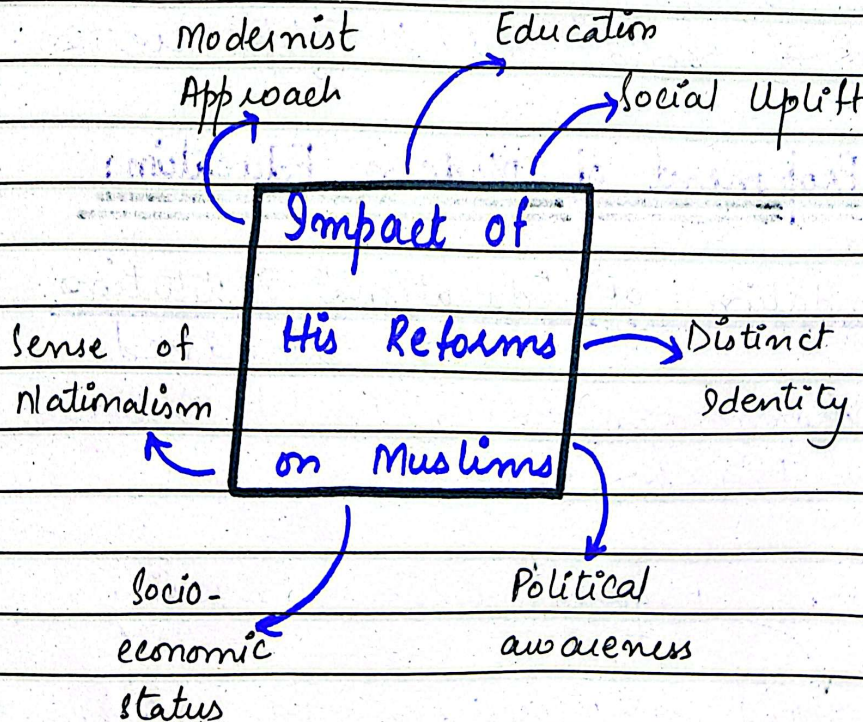 Modernist
Approach
Education
Social Uplift
Impact of
His Reforms
on Muslims
Distinct
Identity
Sense of
Nationalism
Socio-
economic
status
Political
awareness